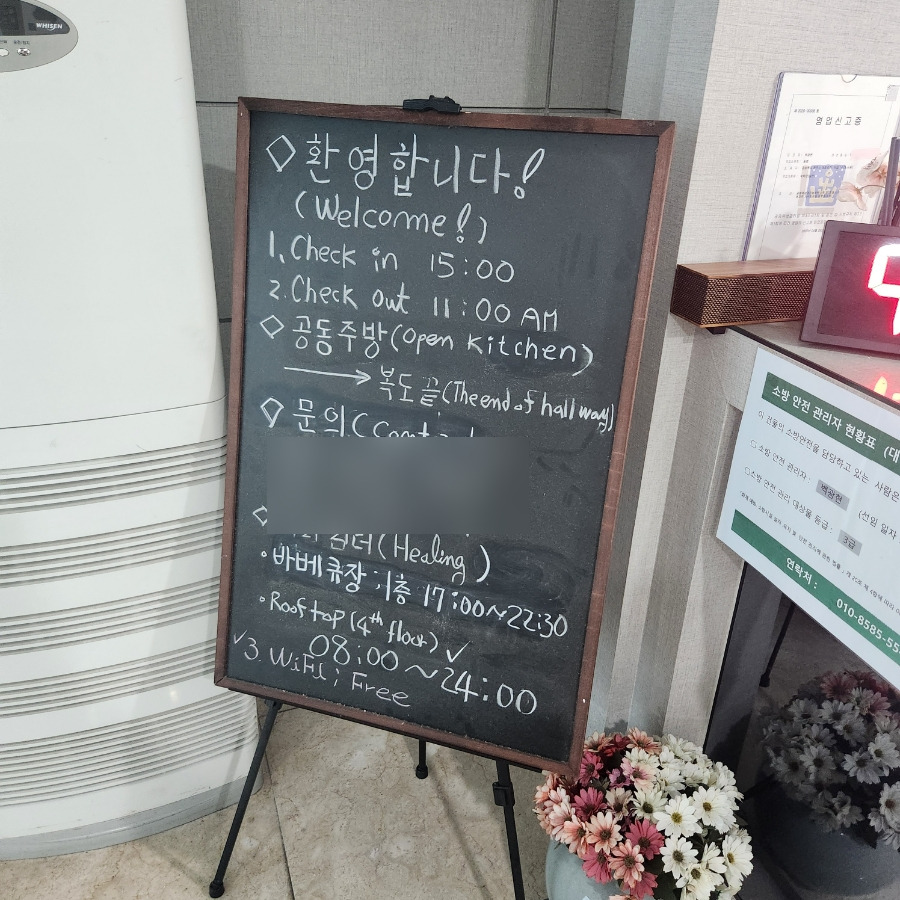 WHISEN
◇ 환영합니다!
(Welcome!)
1. Check in 15:00
2. Check out 11:00 AM
◇ 공동주방(Open Kitchen)
→ 복도 끝(The end of hallway)
◇ 문의(
(Healing)
• 바베큐장 1층 17:00~22:30
• Rooftop(4th floor) ✓
08:00~24:00
✓3. WiFi; Free
영업신고증
소방 안전 관리자 현황표 (대
이 건물의 소방안전을 담당하고 있는 사람은
□소방 안전 관리자 : (선임 일자
□소방 안전 관리 대상물 등급 : 3급
연락처 : 010-8585-55